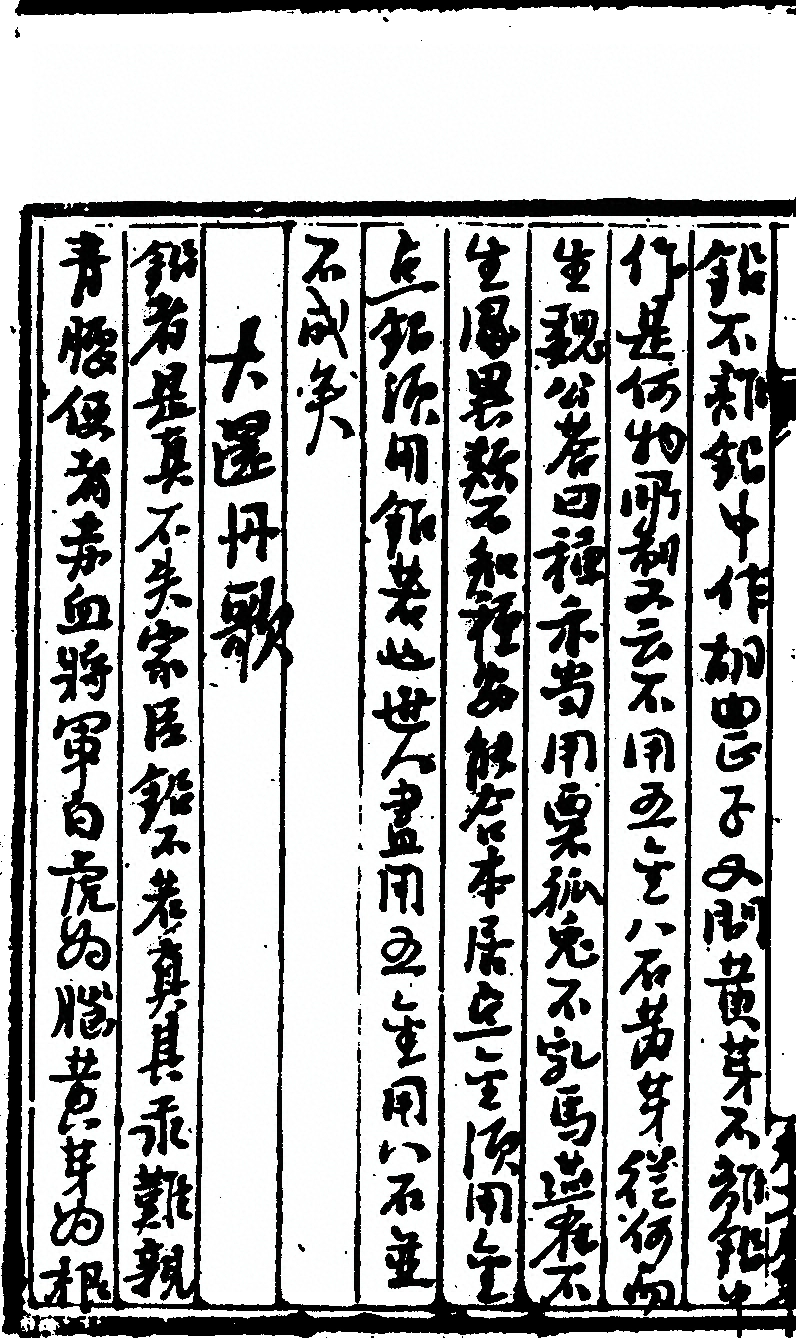 鉛不離鉛中作胡粉是子又問黄芽不離鉛中
作是何物所制又云不用五金八石黄芽從何而
生魏公荅曰種禾當用粟狐兔不乳馬燕雀不
生鳳異類不知種安能合本居点金須用金
点鉛須用鉛若也世人盡用五金用八石並
不成矣
大還丹歌
鉛者是真不失家臣鉛不若真真其汞難親
青腰使者赤血將軍白虎為腦黄芽為根